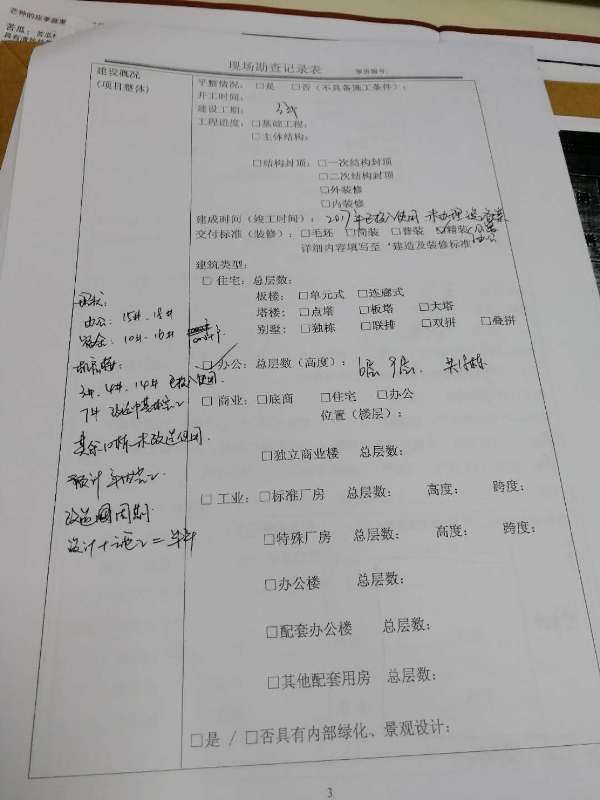 芒种的应季蔬果
苦瓜：苦瓜
现场勘查记录表
建设概况
(项目整体)
平整情况：□是 □否(不具备施工条件)：
开工时间：
建设工期：
工程进度：□基础工程：
□主体结构：
□结构封顶：□一次结构封顶
□二次结构封顶
□外装修
□内装修
建成时间(竣工时间)：2017年已投入使用 未办理
交付标准(装修)：□毛坯 □简装 □普装 ☑精装
详细内容填写至"建造及装修标准
建筑类型：
□ 住宅：总层数：
板楼：□单元式 □连廊式
塔楼：□点塔 □板塔 □大塔
别墅：□独栋 □联排 □双拼 □叠拼
☑办公：总层数(高度)：6层 9层.
□ 商业：□底商 □住宅 □办公
位置(楼层)：
□独立商业楼 总层数：
□ 工业：□标准厂房 总层数： 高度： 跨度：
□特殊厂房 总层数： 高度： 跨度：
□办公楼 总层数：
□配套办公楼 总层数：
□其他配套用房 总层数：
□是 / □否具有内部绿化、景观设计：
现状：
办公：15#、18#
10#、16#
3#、4#、14# 已投入使用.
7#
其余10栋未改造使用.
预计
改造周期
设计+施工=
3